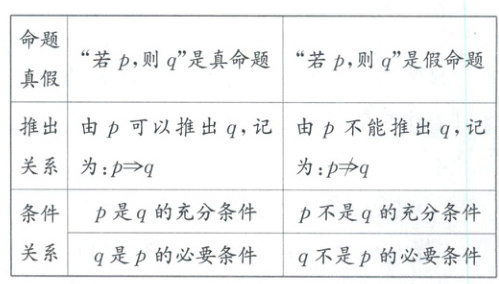 命题
真假
“若 p,则 q”是真命题
“若 p,则 q”是假命题
推出
关系
由 p 可以推出 q,记
为:p⇒q
由 p 不能推出 q,记
为:p⇏q
条件
关系
p 是 q 的充分条件
p 不是 q 的充分条件
q 是 p 的必要条件
q 不是 p 的必要条件